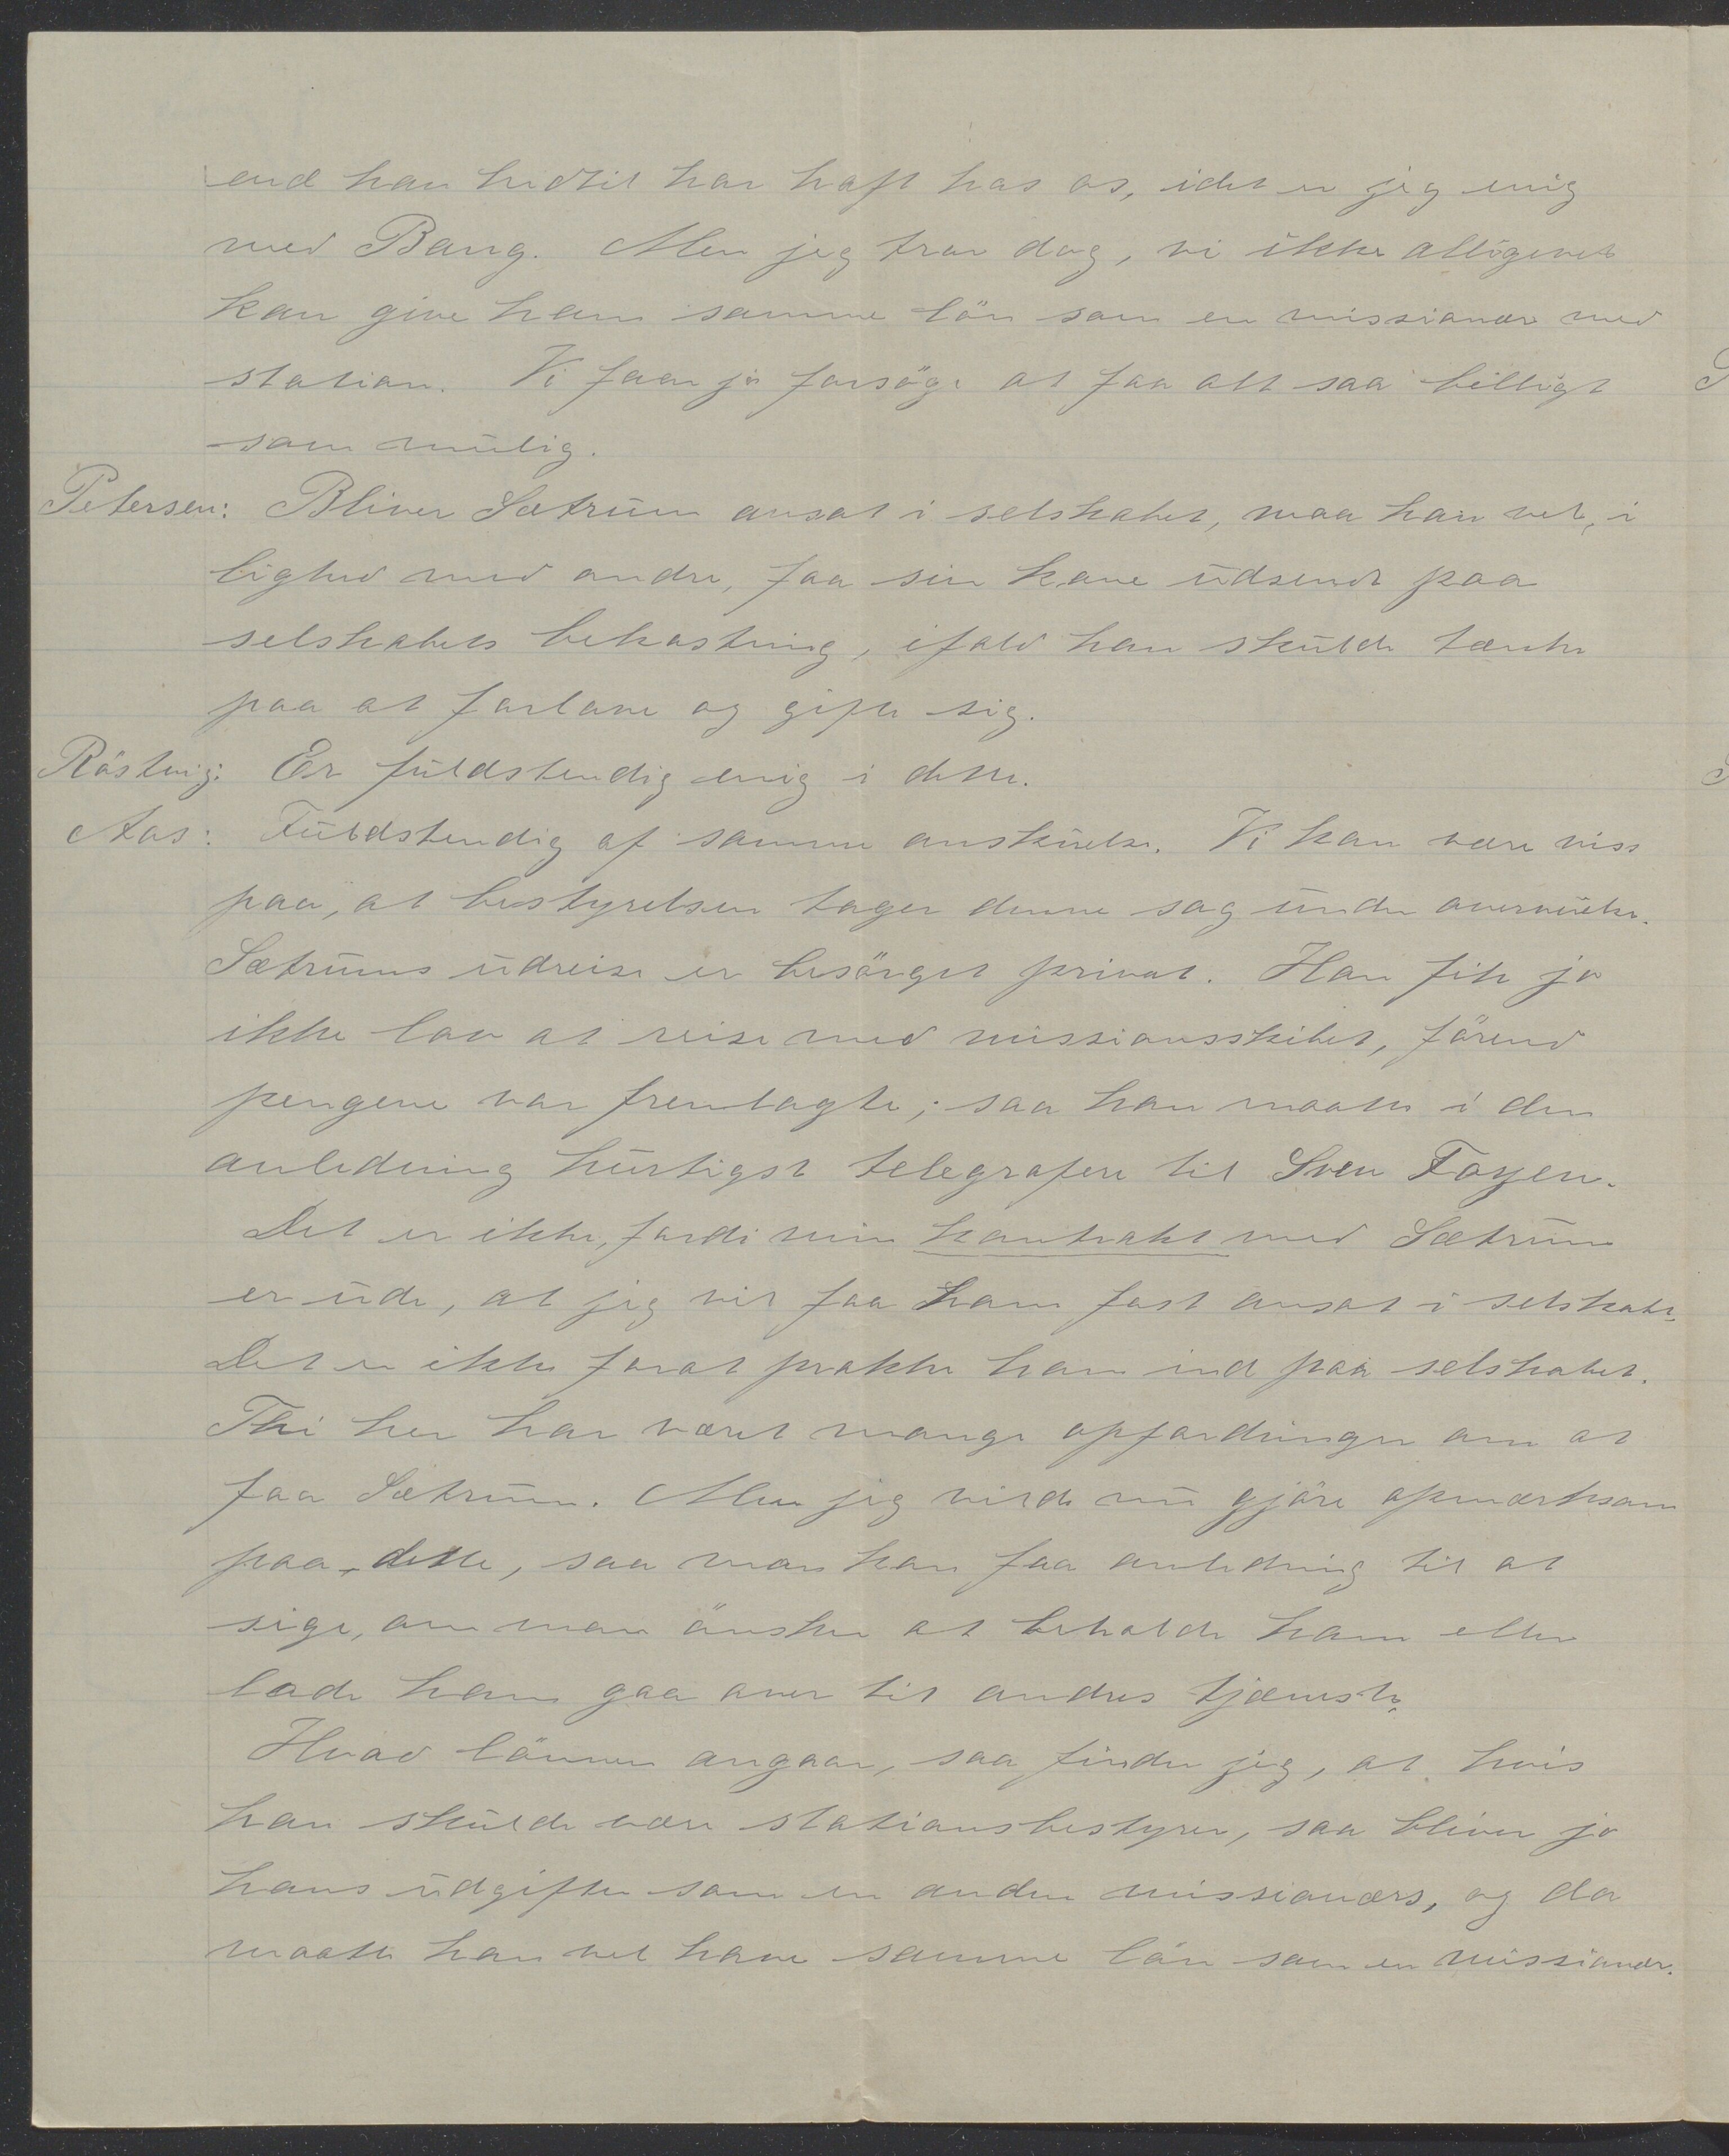 end han hidtil har haft hos os, idet er jeg enig
med Bang. Men jeg tror dog, vi ikke alligevel
kan give ham samme lön som en missionær med
station. Vi faar jo forsöge at faa alt saa billigt
som mulig.
Petersen: Bliver Sætrum ansat i selskabet, maa han vel, i
lighed med andre, faa sin kone udsendt paa
selskabets bekostning, ifald han skulde tænke
paa at forlove og gifte sig.
Röstvig: Er fuldstendig enig i dette.
Aas: Fuldstendig af samme anskuelse. Vi kan være viss
paa, at bestyrelsen tager denne sag under overveielse.
Sætrums udreise er besörget privat. Han fik jo
ikke lov at reise med missionsskibet, förend
pengene var fremlagte; saa han maatte i den
anledning hurtigst telegrafere til Sven Foyen.
Det er ikke, fordi min kontrakt med Sætrum
er ude, at jeg vil faa ham fast ansat i selskabet.
Det er ikke forat prakke ham ind paa selskabet.
Thi her har været mange opfordringer om at
faa Sætrum. Men jeg vilde nu gjöre opmærksom
paa dette, saa man kan faa anledning til at
sige, om man önsker at beholde ham eller
lade ham gaa over til andres tjæneste.
Hvad lönnen angaar, saa finder jeg, at hvis
han skulde være stationsbestyrer, saa bliver jo
hans udgifter som en anden missionærs, og da
maatte han vel have samme lön som en missionær.